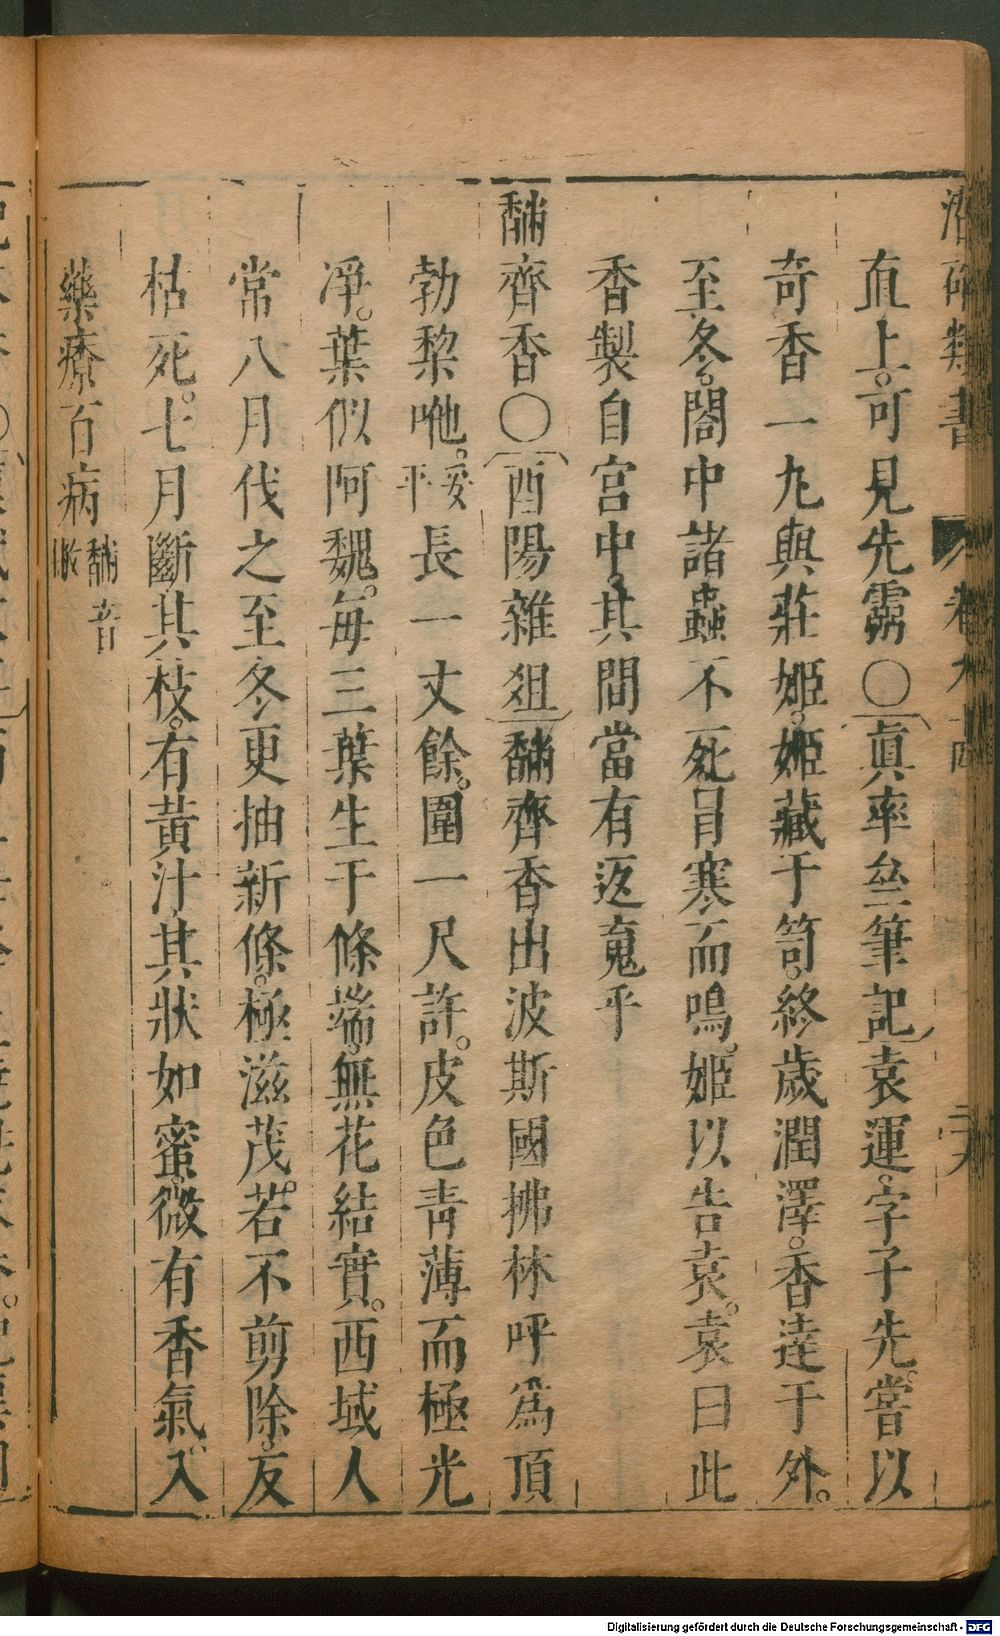 直上。可見先霧〇真率㘴筆記袁運。字子先。嘗以
奇香一丸與莊姬。姬藏于笥。終歲潤澤。香達于外。
至冬。閤中諸蟲不死。冒寒而鳴。姬以告袁。袁曰此
香製自宮中。其間當有返䰟乎
䤗齊香〇酉陽雜俎䤗齊香出波斯國拂林呼爲頂
勃黎咃。長一丈餘。圍一尺許。皮色青薄而極光
淨。葉似阿魏。每三葉生于條端。無花結實。西域人
常八月伐之至冬更抽新條。極滋茂。若不剪除。反
枯死。七月斷其枝。有黃汁其狀如蜜。微有香氣。入
藥療百病
類書
卷九
二六
Digitalisierung gefördert durch die Deutsche Forschungsgemeinschaft - DFG